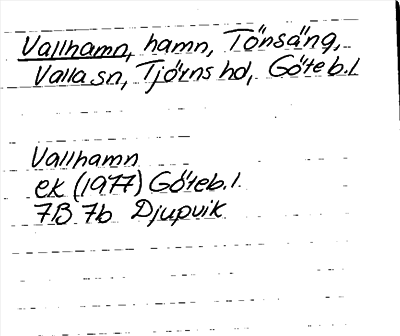 Vallhamn, hamn, Tönsäng,
Valla sn, Tjörns hd, Göteb.l
Vallhamn
ek (1977) Göteb.l.
7B 7b Djupvik